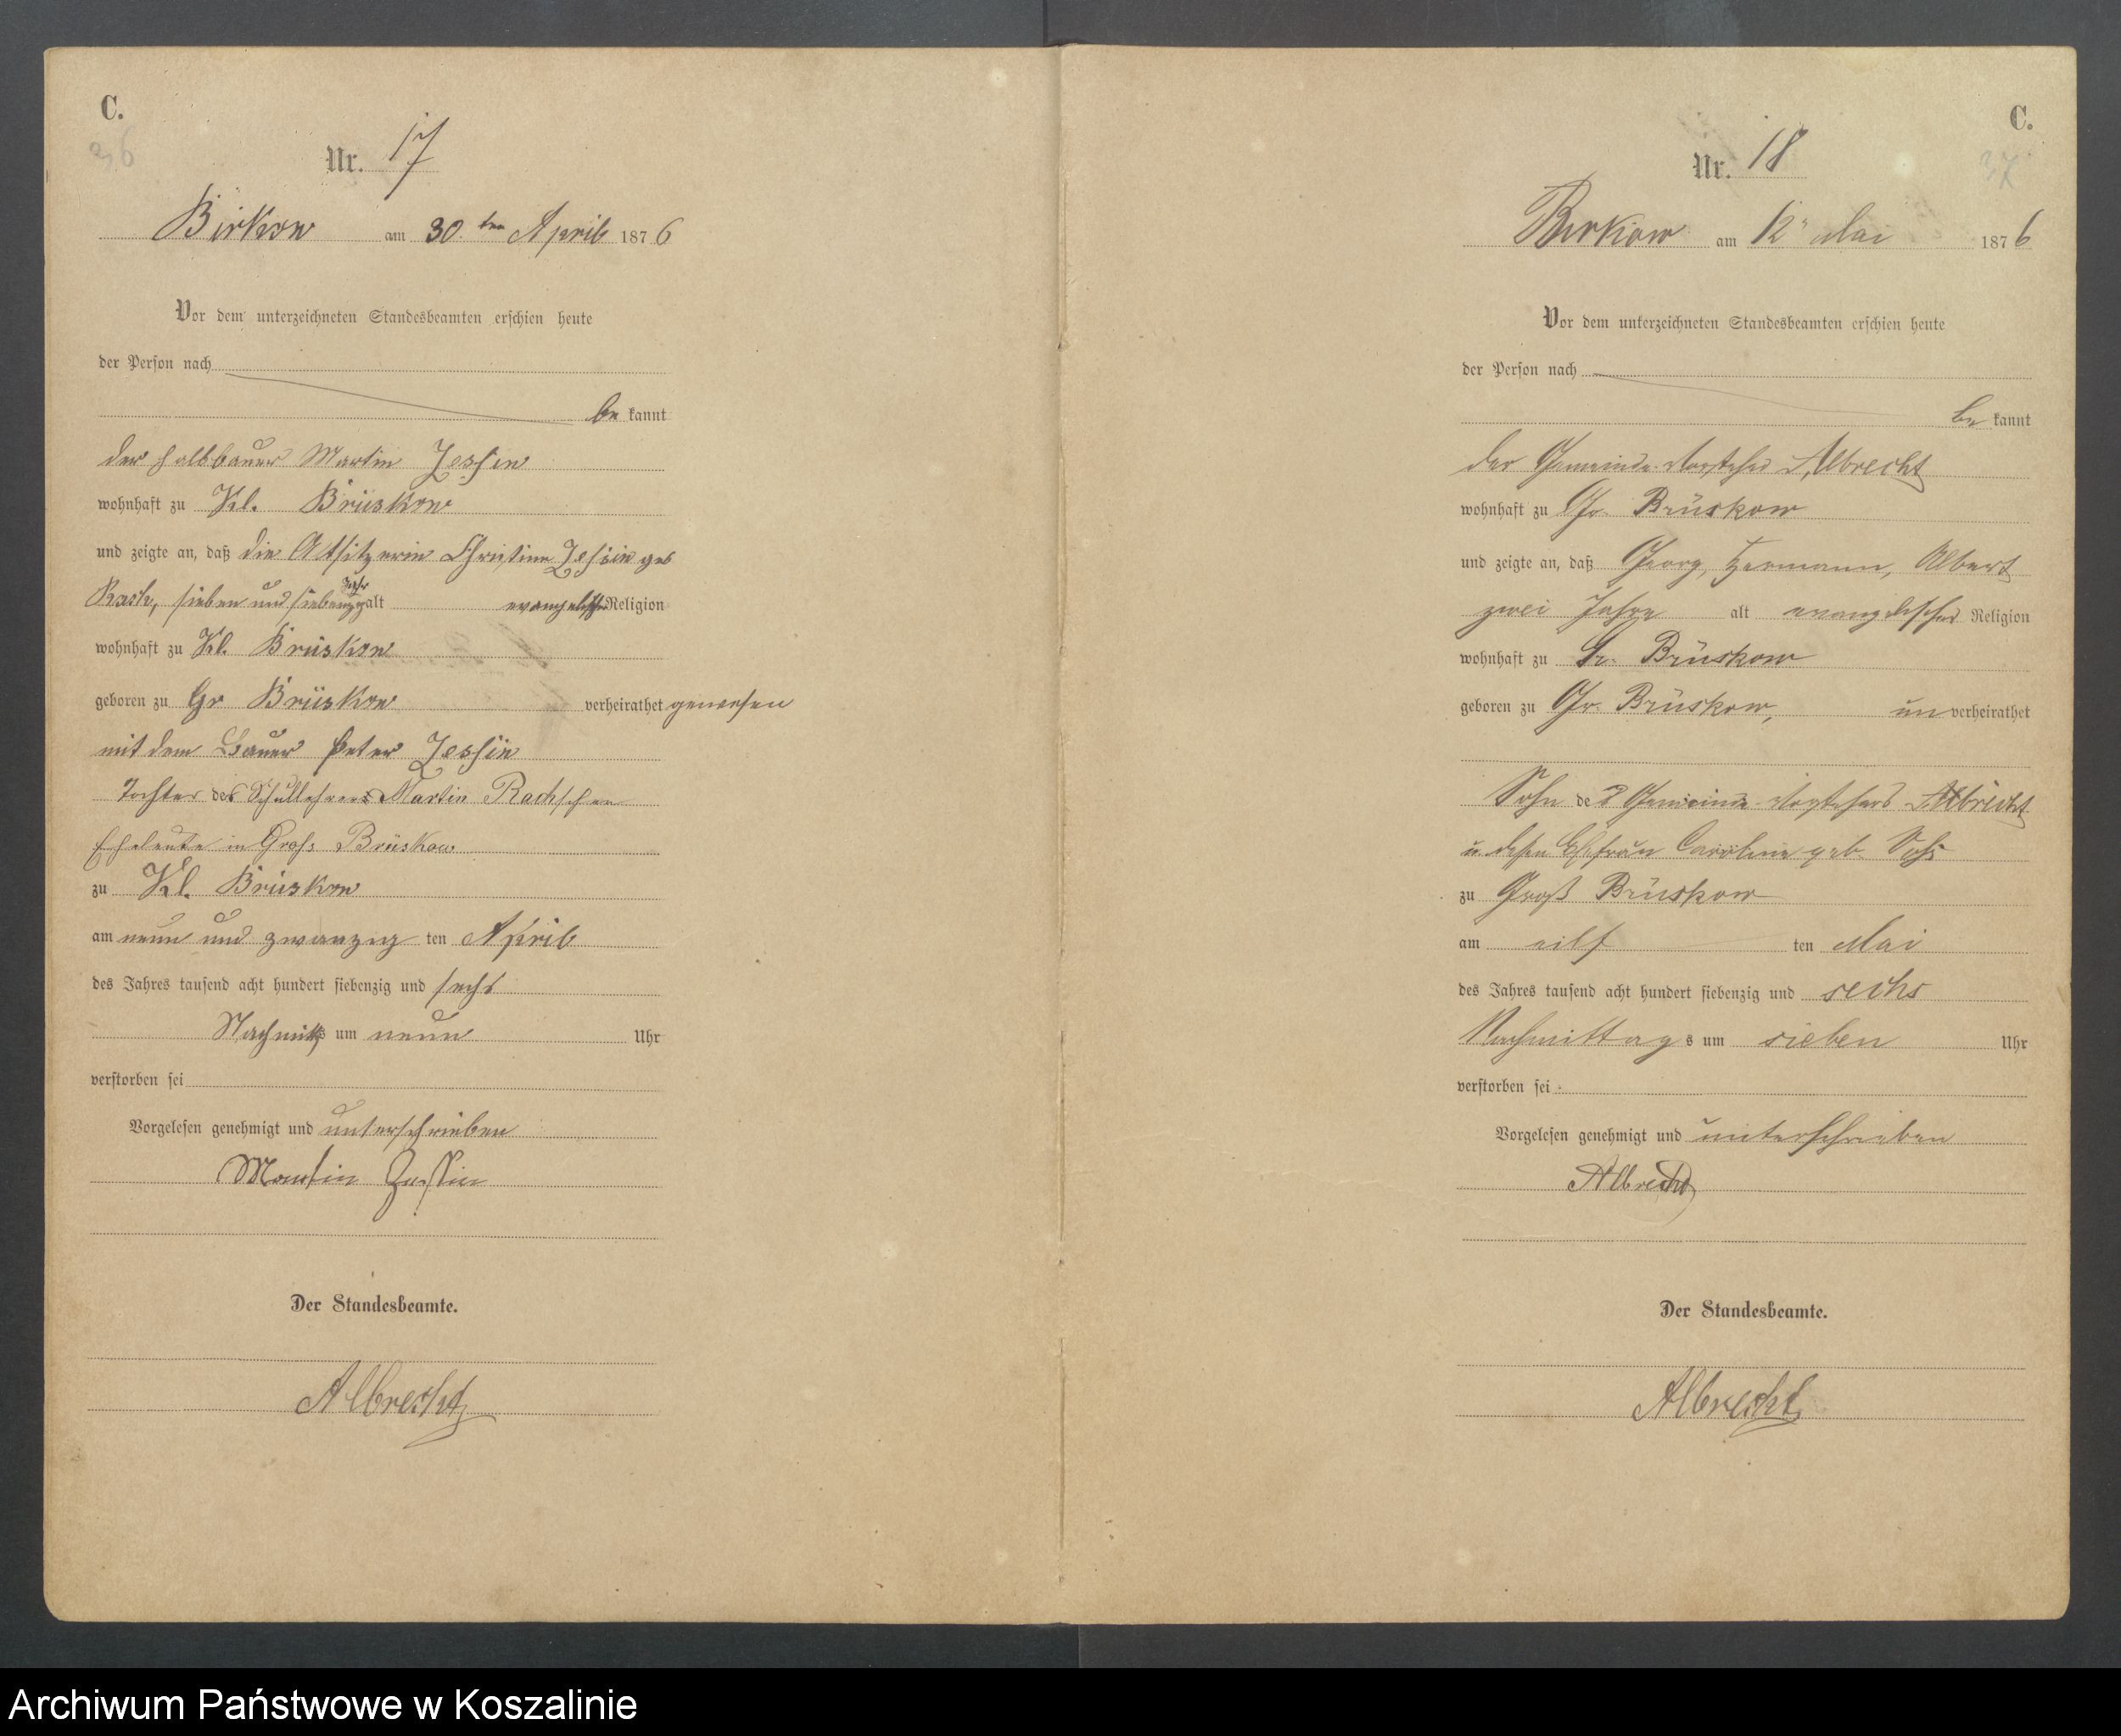 C.
36
Nr. 17
Birkow am 30 ten April 1876
Vor dem unterzeichneten Standesbeamten erschien heute
der Person nach
be kannt
der Halbbauer Martin Jessin
wohnhaft zu Kl. Brüskow
und zeigte an, daß die Altsitzerin Christine Jessin geb
Rach, sieben und siebenzig Jahr alt evangelischer Religion
wohnhaft zu Kl. Brüskow
geboren zu Gr Brüskow verheirathet gewesen
mit dem Bauer Peter Jessin
Tochter des Schullehrers Martin Rachschen
Eheleute in Gross Brüskow
zu Kl. Brüskow
am neun und zwanzig ten April
des Jahres tausend acht hundert siebenzig und sechs
Nachmitt s um neun Uhr
verstorben sei
Vorgelesen genehmigt und unterschrieben
Martin Jessin
Der Standesbeamte.
Albrecht
C.
37
Nr. 18
Birkow am 12 Mai 1876
Vor dem unterzeichneten Standesbeamten erschien heute
der Person nach
be kannt
der Gemeinde-Vorsteher Albrecht
wohnhaft zu Gr. Brüskow
und zeigte an, daß Georg, Hermann, Albert
zwei Jahre alt evangelischer Religion
wohnhaft zu Gr. Brüskow
geboren zu Gr. Brüskow, un verheirathet
Sohn des Gemeinde-Vorstehers Albrecht
u. dessen Ehefrau Caroline geb.
zu Groß Brüskow
am eilf ten Mai
des Jahres tausend acht hundert siebenzig und sechs
Nachmittag s um sieben Uhr
verstorben sei
Vorgelesen genehmigt und unterschrieben
Albrecht
Der Standesbeamte.
Albrecht
Archiwum Państwowe w Koszalinie